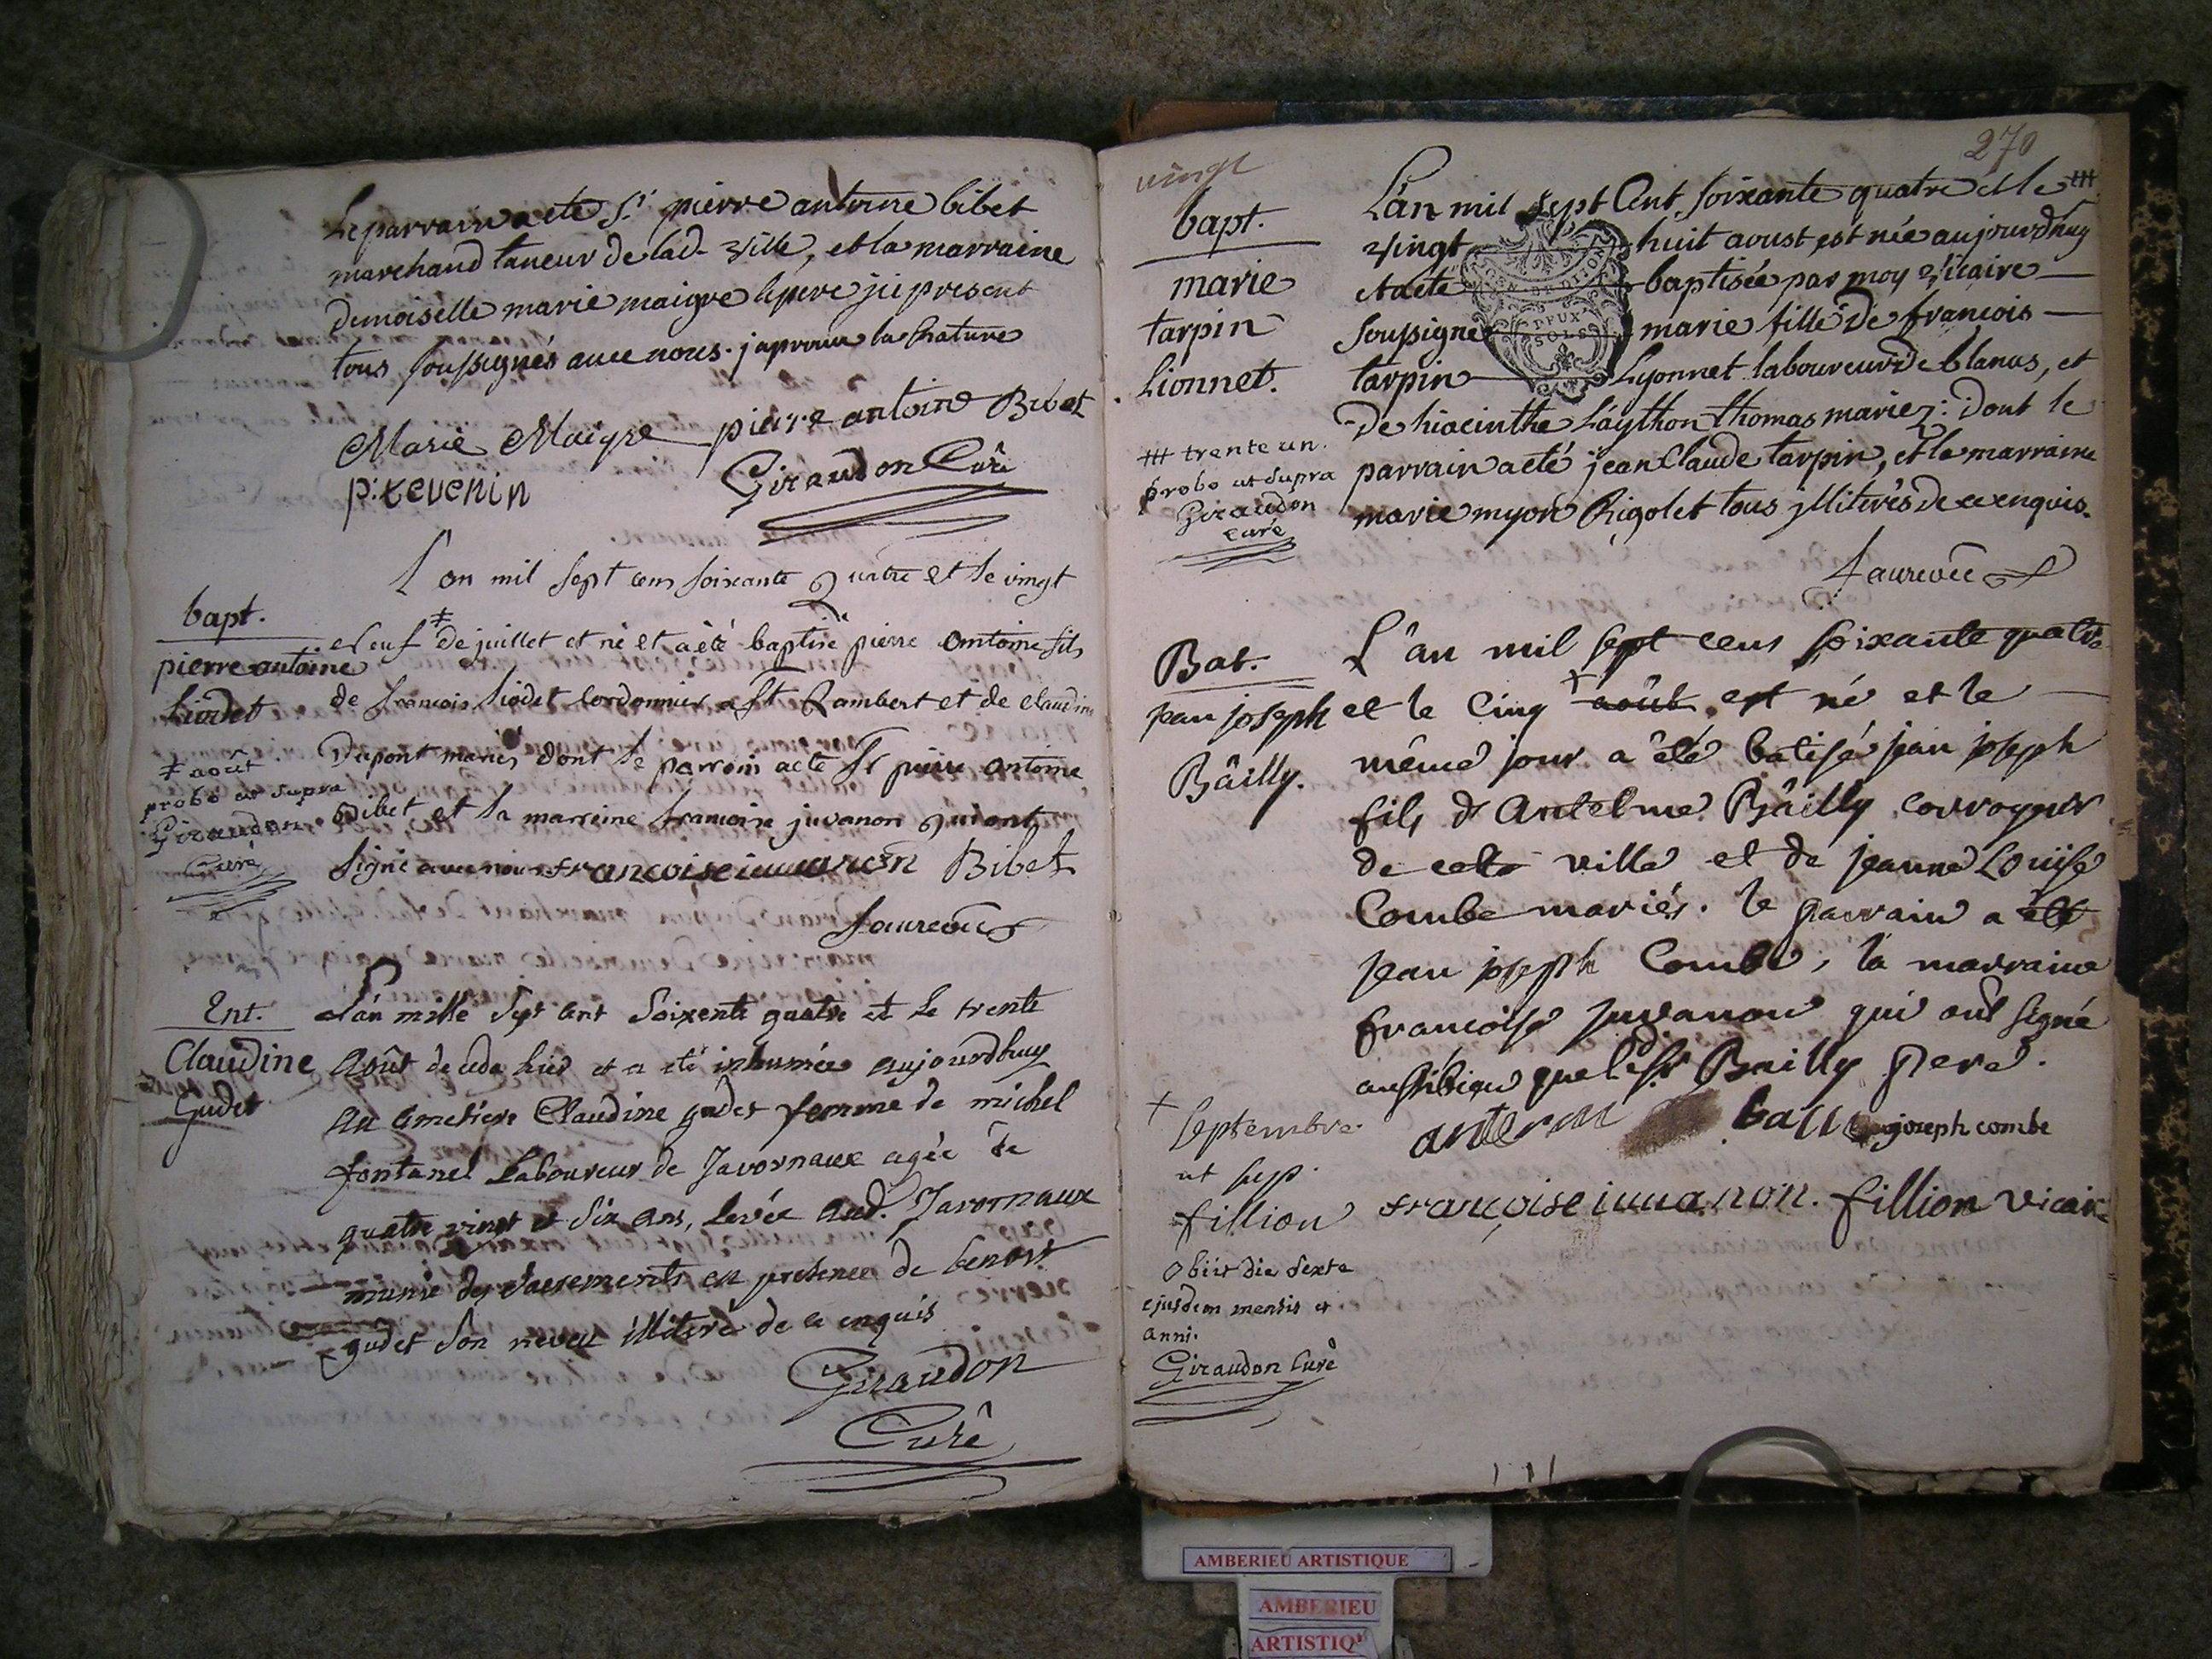 Le parrain a eté Sr. pierre antoine bibet
marchand taneur de lad. ville, et la marraine
demoiselle marie maigre le pere ji present
tous soussignés avec nous. japrouve la rature
Marie Maigre pierre antoine Bibet
p: tevenin Giraudon Curé
L'an mil sept cens soixante quatre et le vingt
bapt.
pierre antoine
Liodet
‡ août
probo ut supra
Giraudon
Curé
neuf ‡ de juillet et né et a été baptisé pierre antoine fils
de francois liodet cordonnier a St Rambert et de claudine
Dupont mariés dont le parrein a eté Sr pierre antoine
Bibet et la marreine francoise juvanon qui ont
signé avec nous francoise iuuanon Bibet
Laurevou
Ent.
Claudine
Gudet
L'an mille sept cent soixente quatre et le trente
Août decede hier et a eté inhumée aujourdhuy
au cimetiere Claudine gudet femme de michel
fontanel Laboureur de Javornaux agée de
quatre vingt et dix ans, Levée aud. Javornaux
munie des sacrements en présence de benoit
gudet son neveu illiteré de ce enquis
Giraudon
Curé
270
vingt
bapt.
marie
tarpin
Lionnet.
ttt trente un.
probo ut supra
Giraudon
curé
L'an mil sept Cent soixante quatre et le ttt
vingt huit aoust est née aujourdhuy
et a eté baptisée par moy vicaire
soussigné marie fille de francois
tarpin Lyonnet laboureur de blanas, et
de hiacinthe Laython thomas mariez: dont le
parrain a eté jean Claude tarpin, et la marraine
marie myon Rigolet tous jlliterés de ce enquis.
DEUX
SOLS
Laurevou
Bat.
jean joseph
Bâilly.
L'ân mil sept cens soixante quatre
et le cinq + août est né et le
même jour a été batisé jean joseph
fils d'Antelme Bâilly corroyeur
de cette ville et de jeanne Louise
Combe mariés. le parrain a été
jean joseph Combe, la marraine
francoise juvanon qui ont signé
aussibien que le Sr Bailly pere.
antermə bailli joseph combe
françoise iuuanon. fillion vicaire
+
septembre
ut sup.
fillion
obiit die sexta
ejusdem mensis et
anni.
Giraudon Curé
AMBERIEU ARTISTIQUE
AMBERIEU
ARTISTIQ